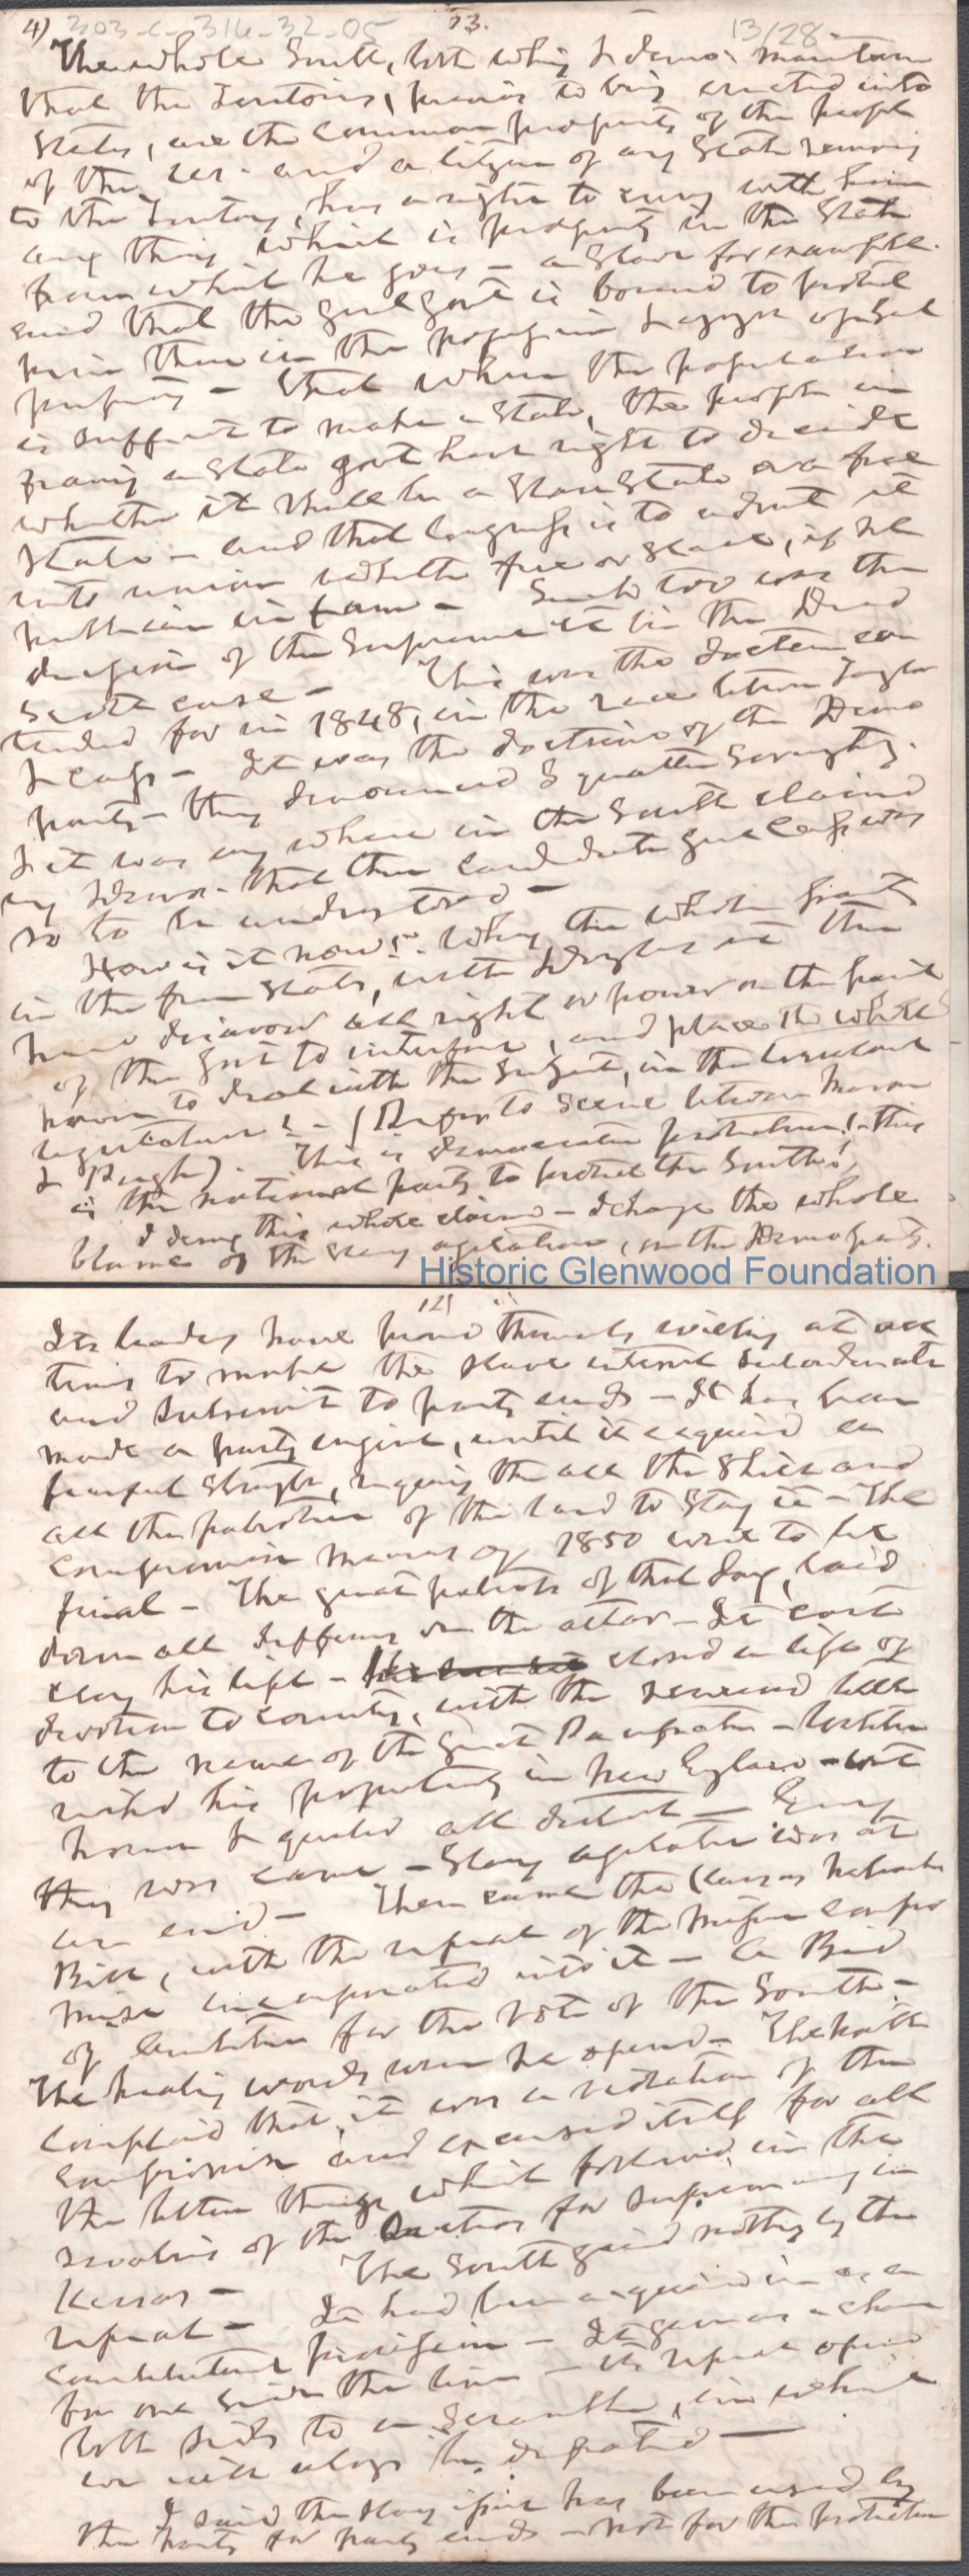 4) 303-c-316-32-05 13. 13/28
The whole South, both whig & demo. maintain
that the Territories, previous to being erected into
States, are the common property of the people
of the and a citizen of any State removing
to the Territory, has a right to carry with him
any thing which is property in the State
from which he goes — a slave for example.
and that the Genl Govt is bound to protect
him there in the & enjoyment of such
property — That when the population
is sufficient to make a State, the people in
framing a State govt have right to decide
whether it shall be a Slave State or a free
State — and that Congress is to admit it
into union whether free or slave, if rep
publican in form — Such too was the
decision of the Supreme Ct in the Dred
Scott case — This was the doctrine con
tended for in 1848, in the race between Taylor
& Cass — It was the doctrine of the Demo
party — they denounced Squatter Sovreignty.
& it was any where in the South claimed
by Demos. that their candidate Genl Cass was
so to be understood —
How is it now? Why the whole party
in the free States, with Douglas at their
head disavow all right or power on the part
of the Govt to interfere, and place the whole
power to deal with the subject, in the
legislature! — (Refer to scene between
& Pugh). This is democratic protection! this
is the national party to protect the South!
I deny this whole claim — I charge the whole
blame of the slavery agitation, on the Demo party.
Historic Glenwood Foundation
12)
Its leaders have proved themselves willing at all
times to make the slave interest subordinate
and subservient to party ends — It has been
made a party engine, until it acquired a
fearful strength, requiring the all the skill and
all the patriotism of the land to stay it — The
compromise measures of 1850 were to be
final — The great patriots of that day, laid
down all differences on the altar — It cost
Clay his life — closed a life of
devotion to country, with the renewed title
to the name of the Great Pacificator — Webster
risked his popularity in New England — went
home & quieted all discontent — Every
thing was calm — Slavery agitation was at
an end — Then came the Kansas Nebraska
Bill, with the repeal of the Missouri Compro
mise incorporated into it — A Bid
of for the vote of the South —
The healing wounds were re opened — The North
complained that it was a violation of the
compromise and excused itself for all
the bitter things which followed, in the
of the for supremacy in
Kansas — The South gained nothing by the
repeal — It had been acquired in as a
— It gave us a chance
for one side the line — its repeal opened
both sides to a scramble, in which
we will always be defeated —
I said the slavery issue has been used by
the party for party ends — not for the protection